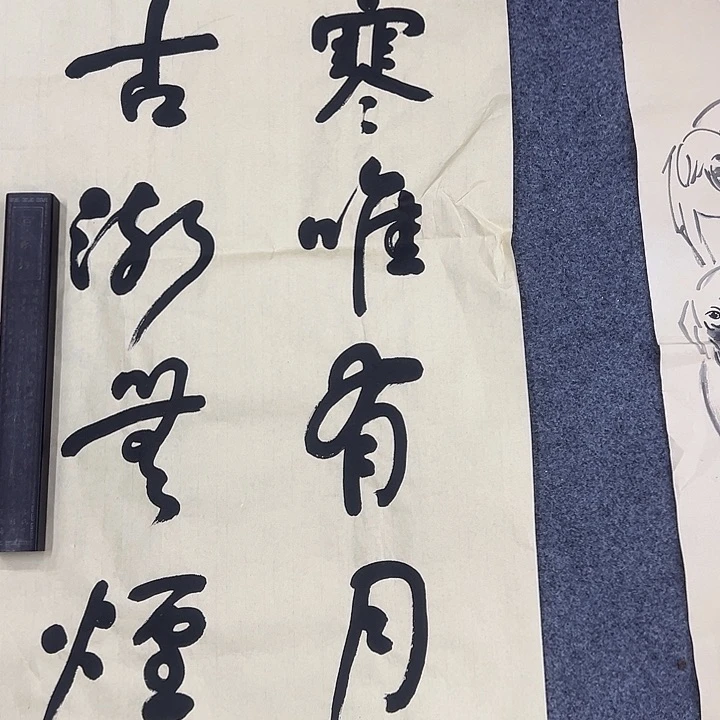 寒唯有月
古渺無煙